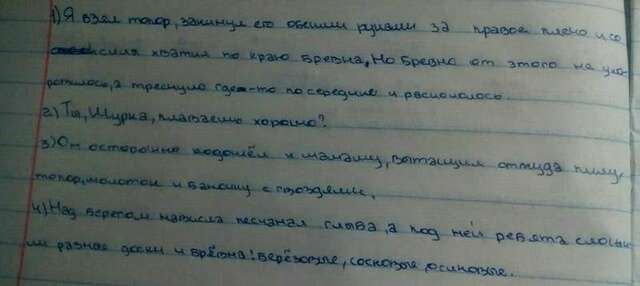 1) Я взял топор, закинул его обеими руками за правое плечо и со
всей силы хватил по краю бревна, Но бревно от этого не уко-
ротилось, а треснуло где-то по середине и раскололось.
2) Ты, Шурка, плаваешь хорошо?
3) Он осторожно подошёл к шалашу, вытащил оттуда пилу,
топор, молоток и банку с гвоздями.
4) Над берегом нависла песчаная глыба, а под ней ребята сложи-
ли разные доски и брёвна: берёзовые, сосновые, осиновые.